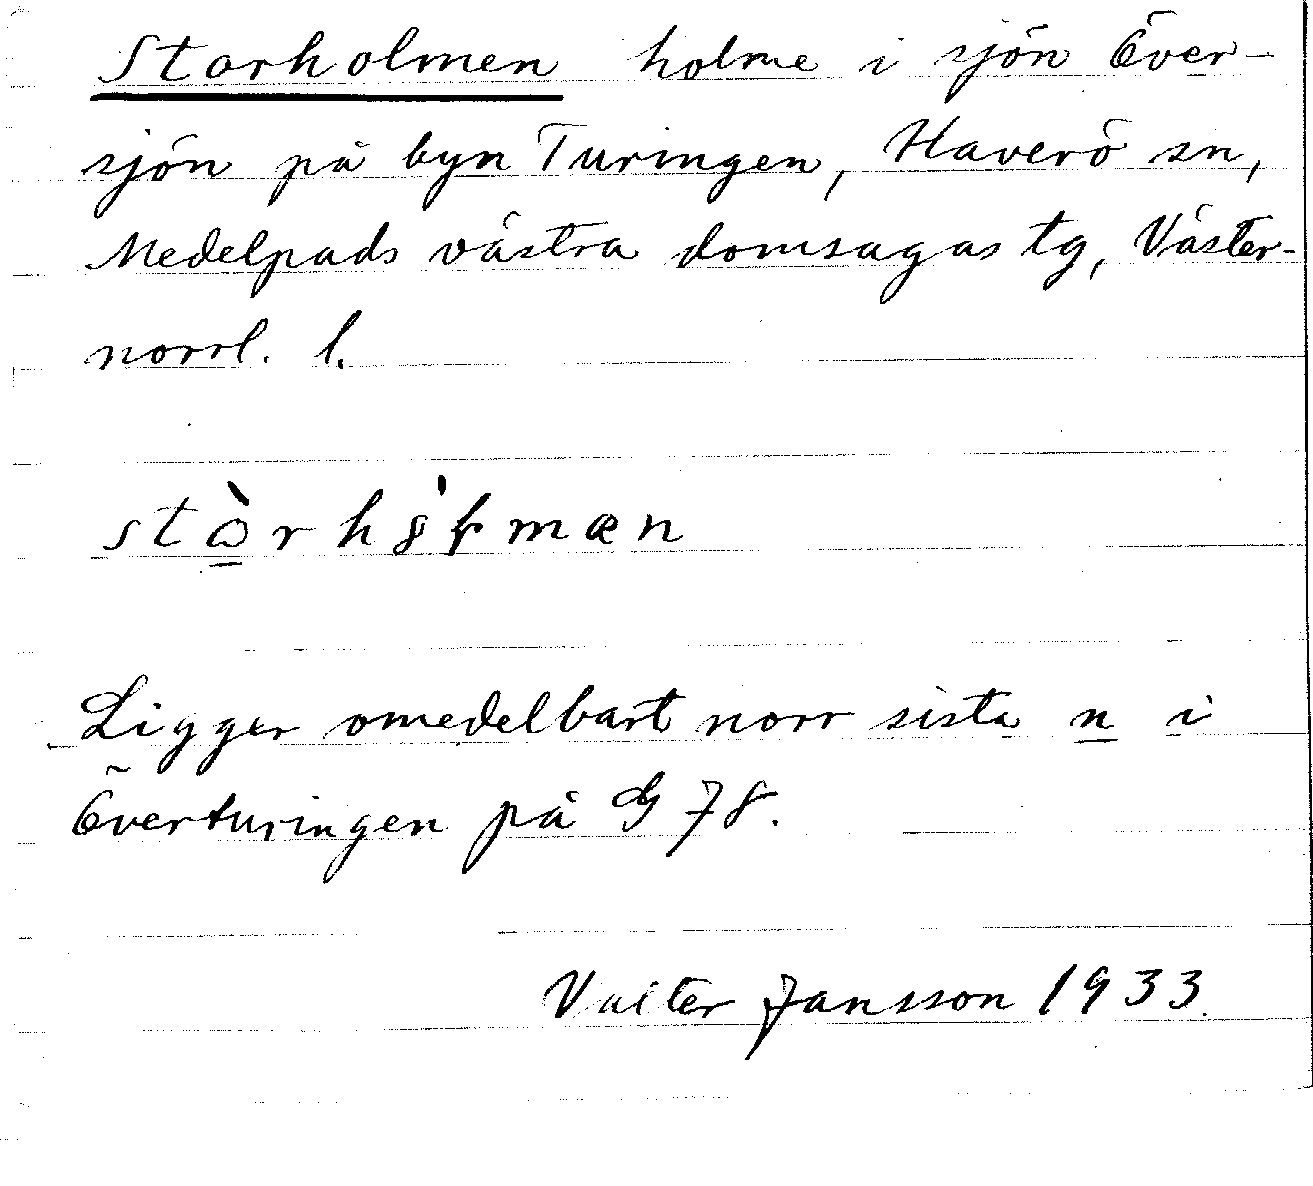 Storholmen holme i sjön Över-
sjön på byn Turingen, Haverö sn,
Medelpads västra domsagas tg, Väster-
norrl. l.
Ligger omedelbart norr sista n i
Överturingen på G 78.
Valter Jansson 1933.